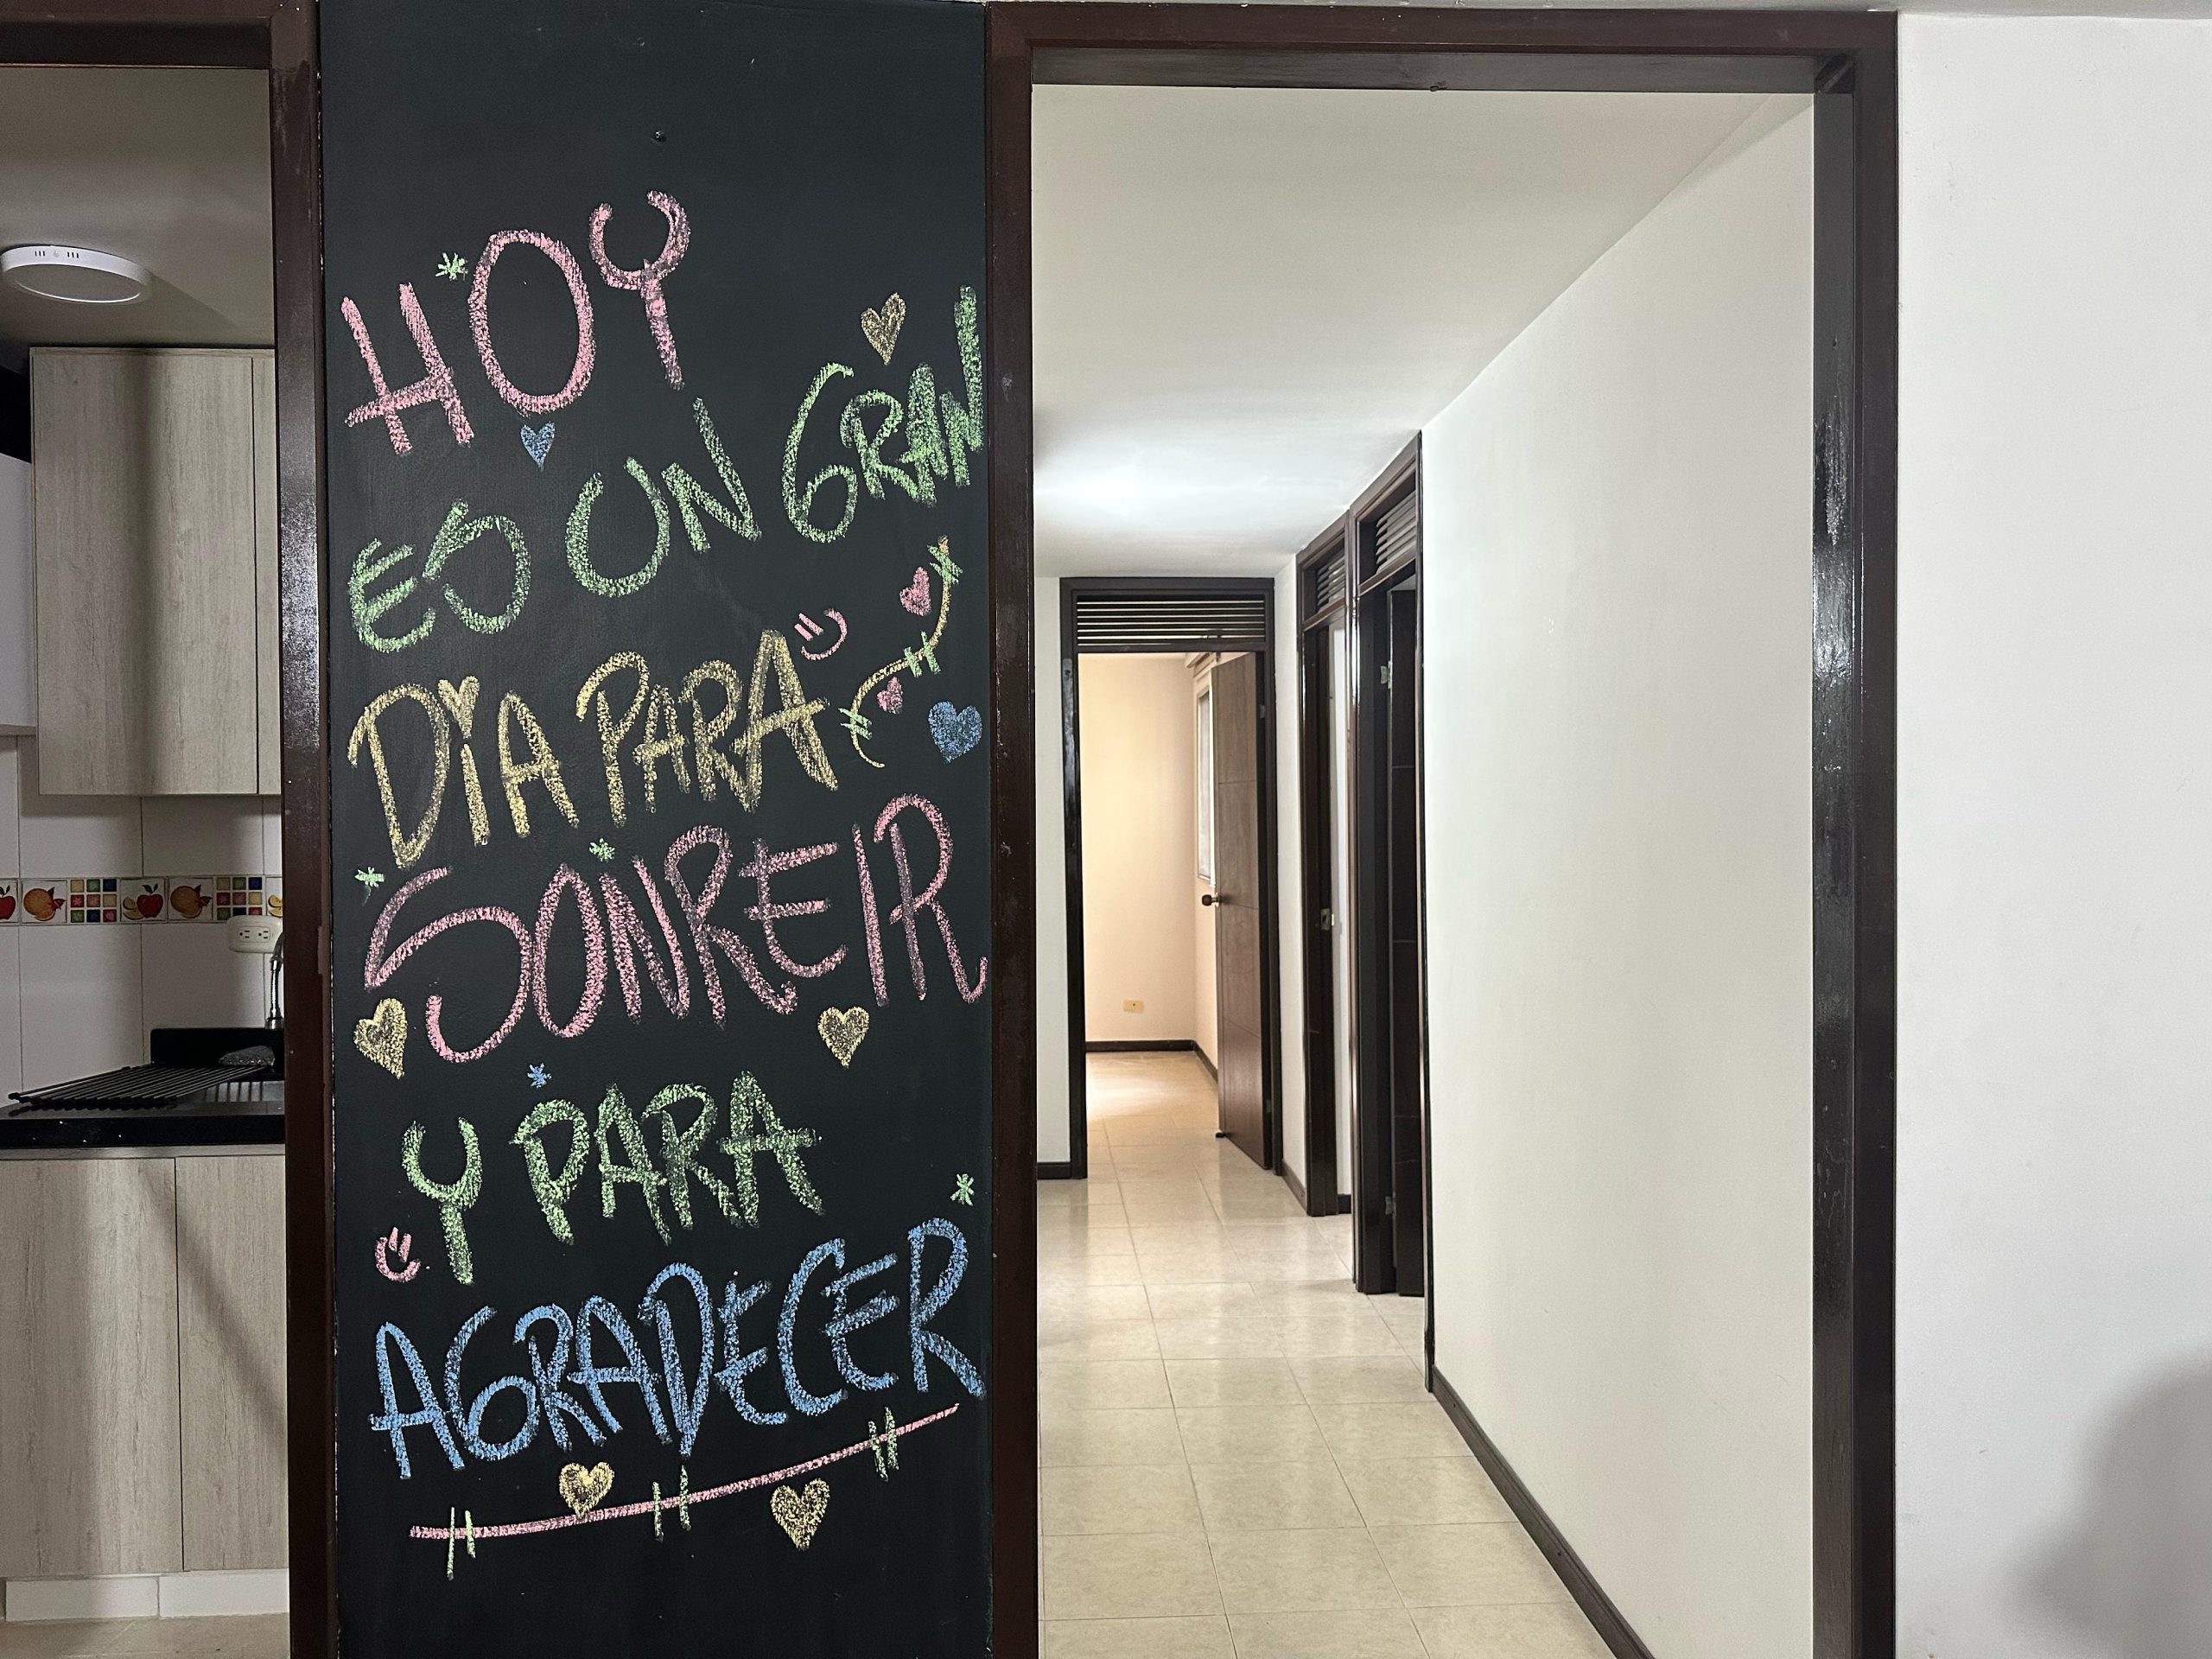 HOY
ES UN GRAN
DIA PARA
SONREIR
Y PARA
AGRADECER